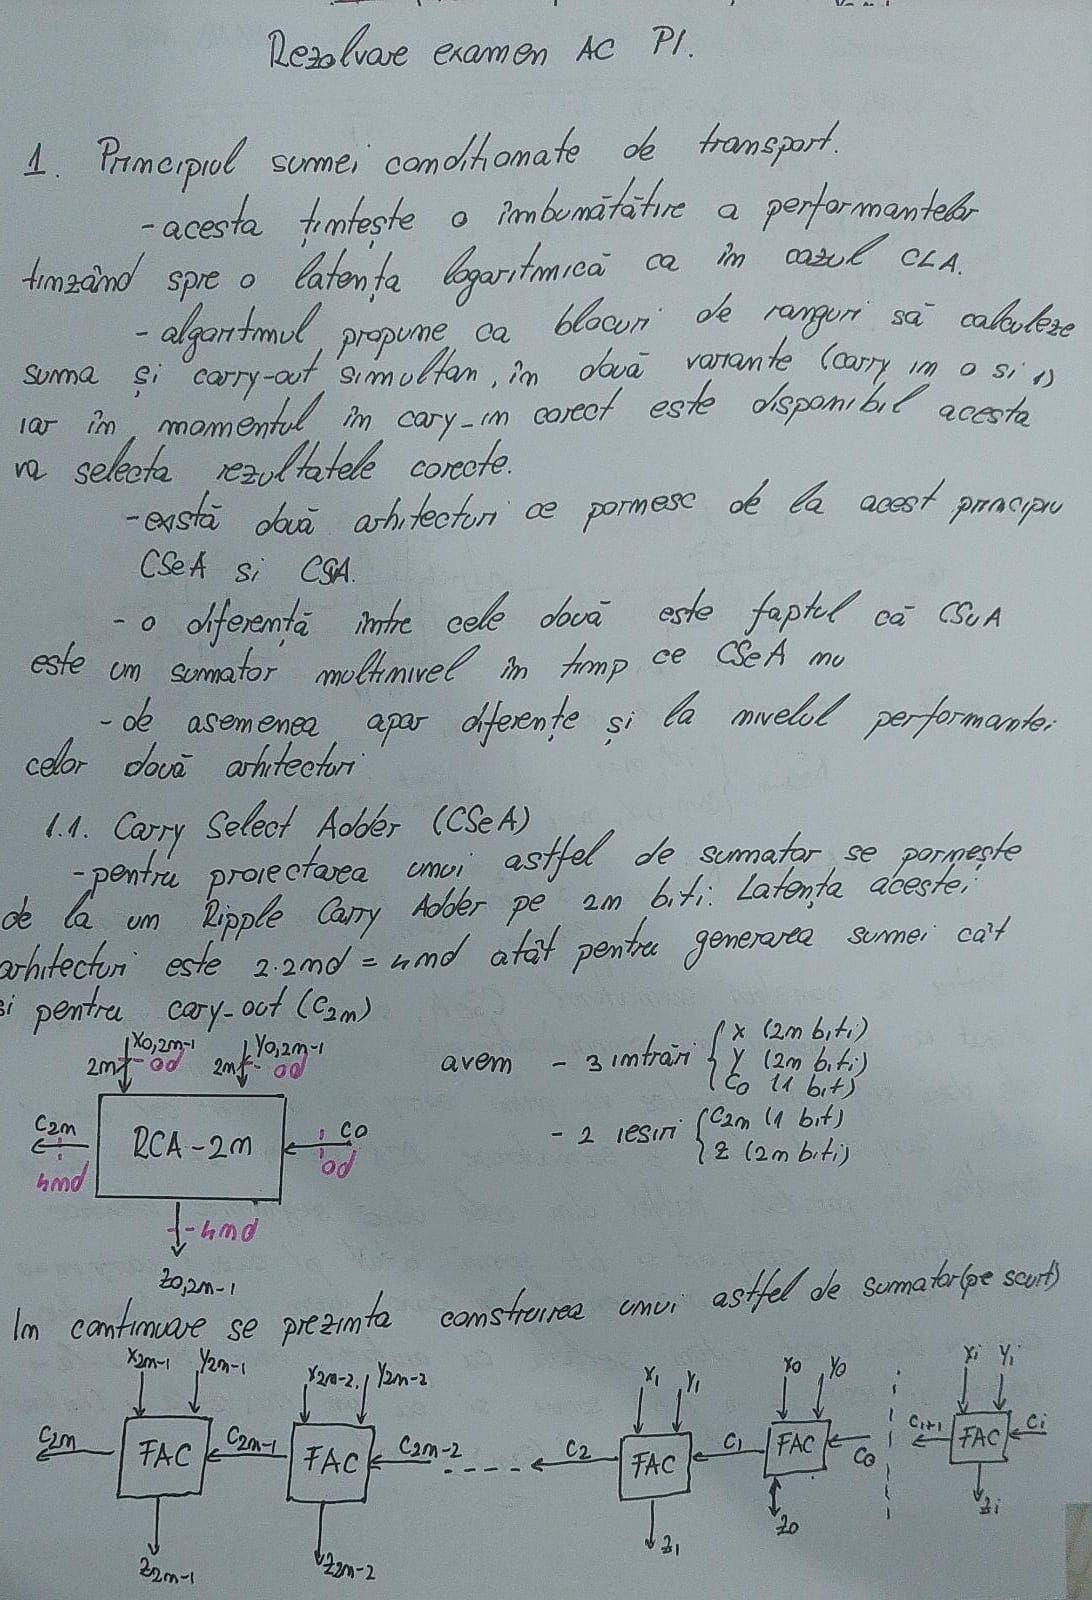 Rezolvare examen AC P1.
1. Principiul sumei conditionate de transport.
- acesta țintește o îmbunătățire a performantelor
tinzând spre o latența logaritmică ca în cazul CLA.
- algoritmul propune ca blocuri de ranguri să calculeze
suma și carry-out simultan, în două variante (carry in 0 si 1)
iar în momentul în cary_in corect este disponibil acesta
va selecta rezultatele corecte.
- există două arhitecturi ce pornesc de la acest principiu
CSeA si CSuA.
- o diferență între cele două este faptul că CSuA
este un sumator multinivel în timp ce CSeA nu
- de asemenea apar diferențe și la nivelul performantei
celor două arhitecturi
1.1. Carry Select Adder (CSeA)
- pentru proiectarea unui astfel de sumator se pornește
de la un Ripple Carry Adder pe 2n biti. Latența acestei
arhitecturi este 2·2nd = 4nd atât pentru generarea sumei cât
si pentru cary_out (C2n)
X0,2n-1 Y0,2n-1
2n 0d 2n 0d
avem - 3 intrări { X (2n biti)
Y (2n biti)
C0 (1 bit)
- 2 iesiri { C2n (1 bit)
Z (2n biti)
C2n RCA-2n C0
4nd 0d
4nd
Z0,2n-1
In continuare se prezinta construirea unui astfel de sumator (pe scurt)
X2n-1 Y2n-1 X2n-2 Y2n-2 X1 Y1 X0 Y0 Xi Yi
C2n FAC C2n-1 FAC C2n-2 C2 FAC C1 FAC C0 Ci+1 FAC Ci
Z2n-1 Z2n-2 Z1 Z0 Zi